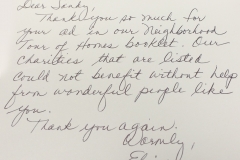 Dear Sandy,
Thank you so much for
your ad in our Neighborhood
Tour of Homes Booklet. Our
charities that are listed
could not benefit without help
from wonderful people like
you.
Thank you again.
Warmly,